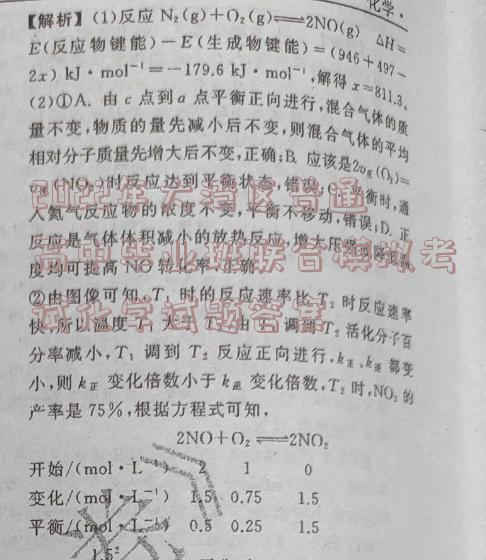 化学·
【解析】(1)反应 N₂(g)+O₂(g)⇌2NO(g) ΔH=
E(反应物键能)-E(生成物键能)=(946+497-
2x) kJ·mol⁻¹=-179.6 kJ·mol⁻¹,解得 x=811.3。
(2)①A. 由 c 点到 a 点平衡正向进行,混合气体的质
量不变,物质的量先减小后不变,则混合气体的平均
相对分子质量先增大后不变,正确;B. 应该是2v正(O₂)=
(NO₂)时反应达到平衡状态,错误;C. 平衡时,通
入氦气反应物的浓度不变,平衡不移动,错误;D. 正
反应是气体体积减小的放热反应,增大压强
度均可提高 NO 转化率,正确。
2022年大湾区普通
高中毕业班联合模拟考
试化学试题答案
②由图像可知,T₁ 时的反应速率比 T₂ 时反应速率
快,所以温度 T₁ 大于 T₂,由 T₁ 调到 T₂ 活化分子百
分率减小,T₁ 调到 T₂ 反应正向进行,k正、k逆 都变
小,则 k正 变化倍数小于 k逆 变化倍数,T₂ 时,NO₂ 的
产率是 75%,根据方程式可知,
2NO+O₂⇌2NO₂
开始/(mol·L⁻¹) 2 1 0
变化/(mol·L⁻¹) 1.5 0.75 1.5
平衡/(mol·L⁻¹) 0.5 0.25 1.5
1.5²